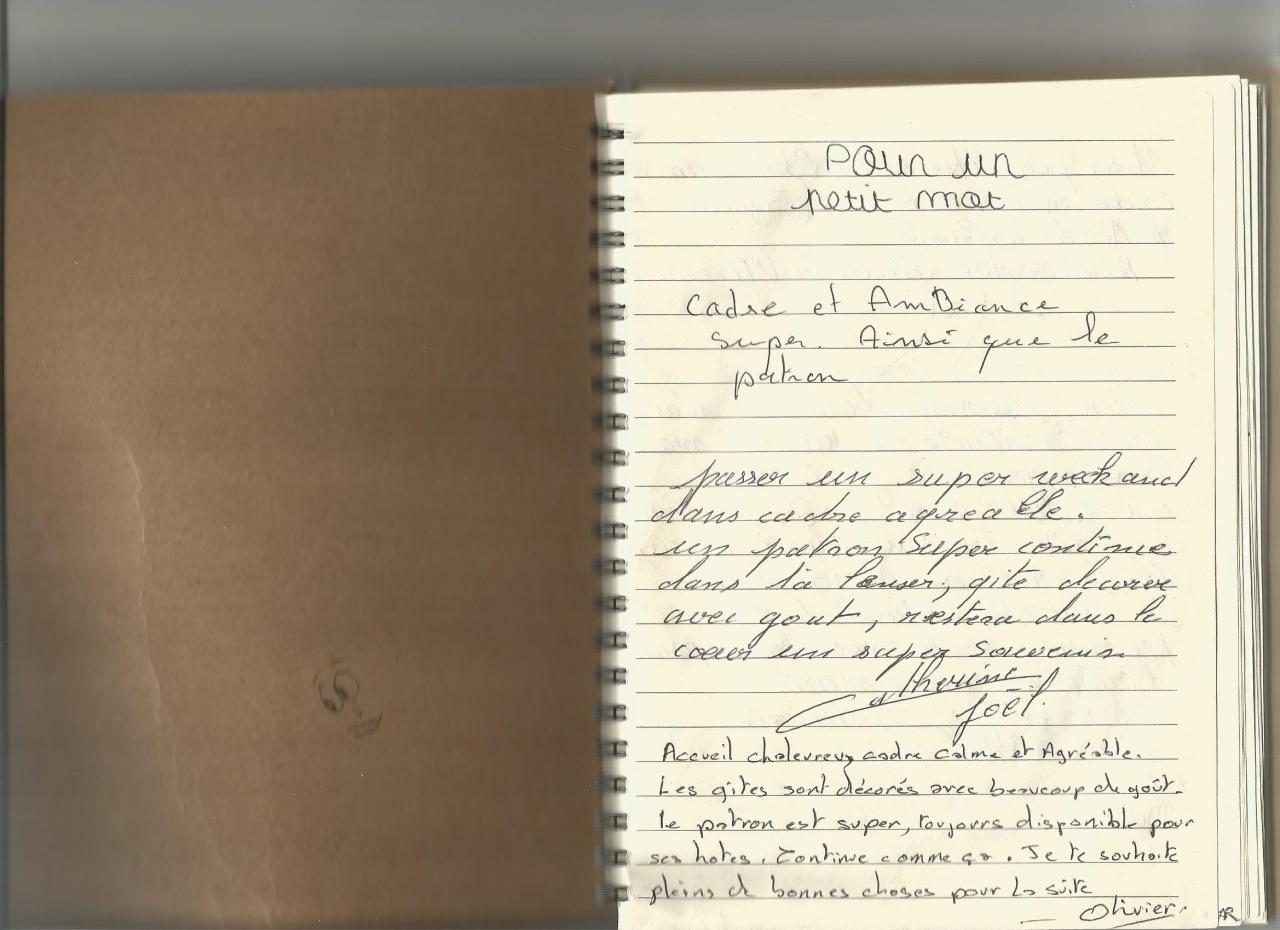 Pour un
petit mot
Cadre et AmBiance
super. Ainsi que le
patron
passer un super week and
dans cadre agreable.
un patron super continue
dans ta lenser, gite decorer
avec gout, restera dans le
cœur un super souvenir.
Catherine
Joël.
Accueil chaleureux, cadre calme et Agréable.
Les gîtes sont décorés avec beaucoup de goût.
le patron est super, toujours disponible pour
ses hotes. Continue comme ça. Je te souhaite
pleins de bonnes choses pour la suite
Olivier.
AR